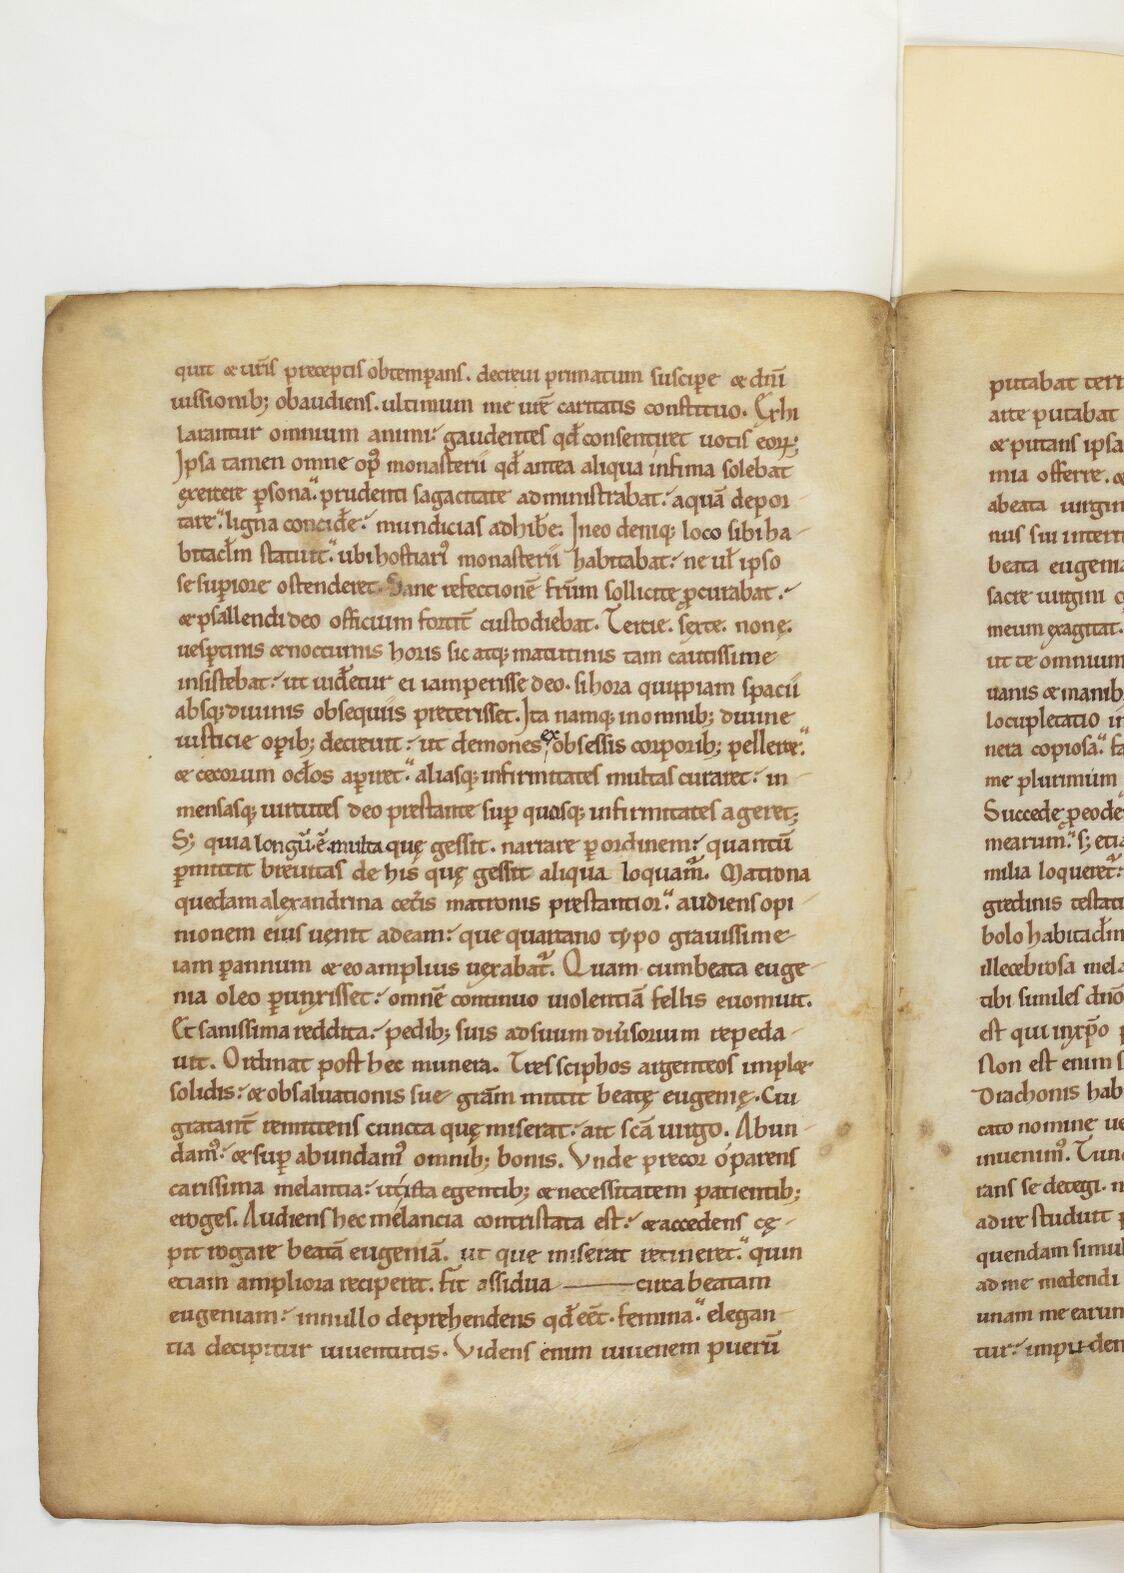 quit & ur̄is p̄receptis obtemꝑans. decreui primatum susciꝑe & dn̄i
iussionib; obaudiens. ultimum me urē caritatis constituo. Exhi
larantur omnium animi: gaudentes qđ consentiret uotis eoꝝ;
Ipsa tamen omne op᷒ monasterii qđ antea aliqua infima solebat
exercere ꝑsona. prudenti sagacitate administrabat: aquā depor
tare. ligna concid̄e: mundicias adhib̄e. In eo deniq; loco sibi ha-
bitacłm statuit. ubi hostiari᷒ monasterii habitabat: ne uł ipso
se suꝑiore ostenderet. Sane refectionē fr̄um sollicite ꝓcurabat.
& psallendi deo officium fortit̄ custodiebat. Tercie. sexte. nonę.
uesꝑtinis & nocturnis horis sic atq; matutinis tam cautissime
insistebat: ut uid̄etur ei iam perisse deo. si hora quippiam spacii
absq; diuinis obsequiis preterisset. Ita namq; in omnib; diuine
iusticie oꝑib; decreuit: ut demones ex obsessis corporib; pelleret.
& cecorum ocłos aꝑiret. aliasq; infirmitates multas curaret: in-
mensasq; uirtutes deo prestante suꝑ quosq; infirmitates ageret;
S; quia longū .ē. multa quę gessit. narrare ꝑ ordinem: quantū
ꝑmittit breuitas de his quę gessit aliqua loquam᷑. Matrona
quedam alexandrina cet̄is matronis prestantior. audiens opi
nionem eius uenit ad eam: que quartano typo grauissime
iam ꝑ annum & eo amplius uexabat᷑. Quam cum beata euge
nia oleo ꝑunxisset: omnē continuo uiolentiā fellis euomuit.
Et sanissima reddita: pedib; suis ad suum diu̾sorium repeda-
uit. Ordinat post hec munera. Tres sciphos argenteos impl&
solidis: & ob saluationis sue gr̄am mittit beatę eugenię. Cui
gratant̄ remittens cuncta quę miserat: ait scā uirgo. Abun-
dam᷒: & suꝑ abundam᷒ omnib; bonis. Vnde precor o parens
carissima melantia: ut ista egentib; & necessitatem patientib;
eroges. Audiens hec melancia contristata est: & accedens cę-
pit rogare beatā eugeniā. ut que miserat retineret. quin
etiam ampliora reciperet. fit assidua —— circa beatam
eugeniam: in nullo deprehendens qđ eēt femina. elegan
tia decipitur iuuentutis. Videns enim iuuenem puerū
putabat terr
arte putabat
& putans ipsa
mia offerre.
abeata uirgin
nus sui interi
beata eugenia
sacre uirgini
meum exagitat.
ut te omnium
uanis & inanib;
locupletatio in
nera copiosa. fa
me plurimum
Succede ꝑeode
mearum. s; etia
milia loqueret᷑.
gredinis testati
bolo habitacłm
illecebrosa mela
tibi similes dnō
est qui in xp̄o p
Non est enim s
Diachonis hab
cato nomine ue
inuenim᷒. Tunc
rans se detegi. n
adire studuit p
quendam simul
ad me medendi
unam me earum
tur: impuden